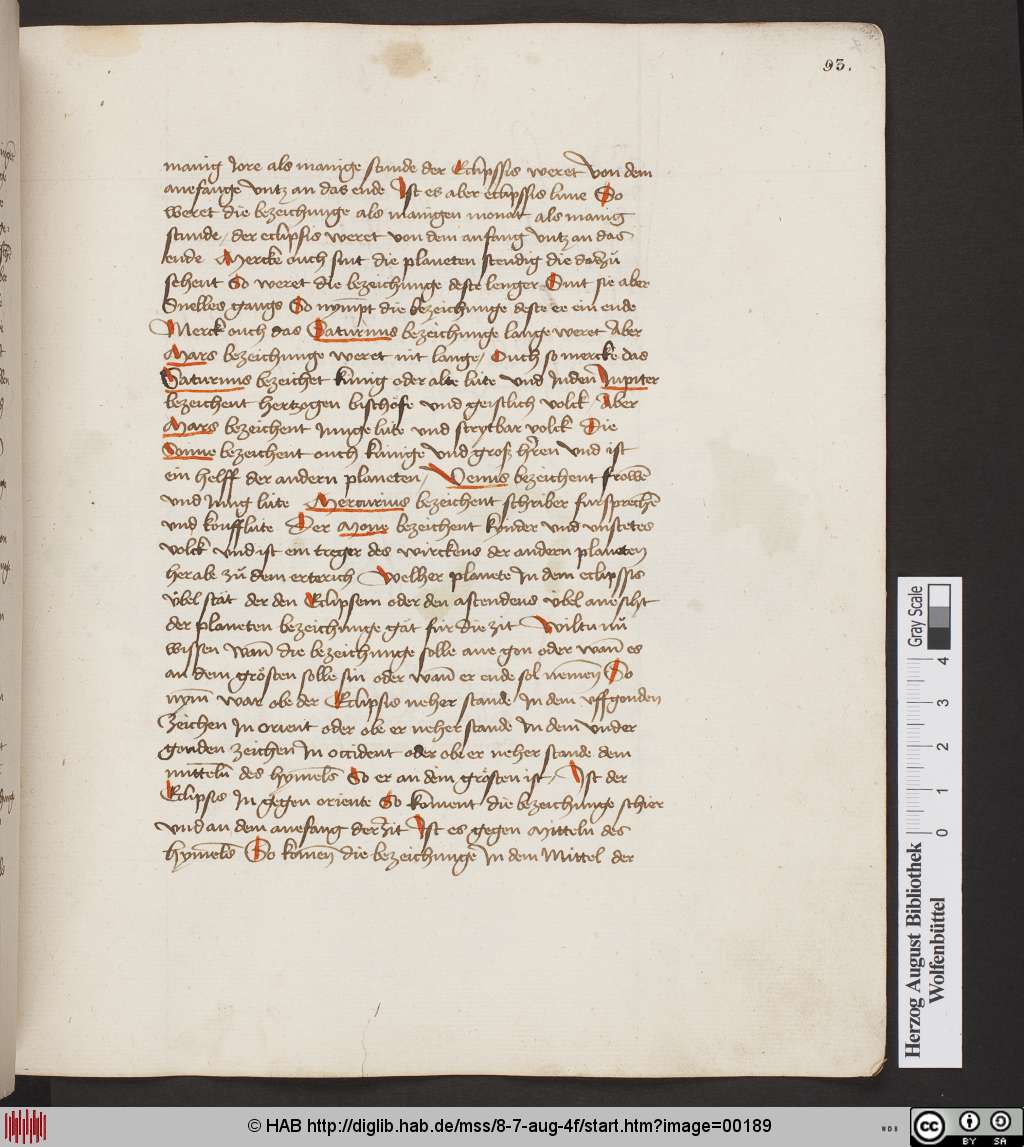 93.
manig Jore als manige stunde der Eclipssis weret von dem
anefange vntz an das ende Ist es aber eclipssis lune So
weret die bezeichunge als manigen monat als manig
stunde / der eclipsis weret von dem anfang vntz an das
ende Mercke ouch sint die planeten stendig die dodzů
sehent So weret die bezeichunge deste lenger Sint sie aber
Snelles gangs So nympt die bezeichunge deste ee ein ende
Merck ouch das Saturinus bezeichunge lange weret Aber
Mars bezeichunge weret nit lange / Ouch so mercke das
Saturinus bezeichet kunig oder alte lute vnd Juden Jupiter
bezeichent hertzogen bischöfe vnd geistlich volck / Aber
Mars bezeichent Junge lute vnd strytbar volck Die
Sonne bezeichent ouch kunige vnd groß hren vnd ist
ein helff der andern planeten / Venus bezeichent frowē
vnd Jung lute Mercurius bezeichent schriber fursprechē
vnd koufflute Der Mone bezeichent kynder vnd vnstetes
volck vnd ist ein treger des wirckens der andern planeten
herabe zů dem erterich Welher planete In dem eclipssis
übel stät der den Eclipsem oder den ascendens übel anesiht
der planeten bezeichunge gät für die zit Wiltu nů
wissen wan̄ die bezeichunge solle ane gon oder wan̄ es
an dem grösten solle sin oder wan̄ er ende sol nemen̄ So
nym̄ war obe der Eclipsis neher stande In dem vffgonden
Zeichen In orient oder obe er neher stande In dem vnder
gonden zeichen In occident oder obe er neher stande dem
mitteln̄ des hymels So er an dem grösten ist / Ist der
Eclipsis In gegen oriente So kom̄ent die bezeichunge schier
vnd an dem anefang der zit Ist es gegen Mitteln des
hym̄els So komen̄ die bezeichunge In dem Mittel der
Gray Scale
0 1 2 3 4
Herzog August Bibliothek
Wolfenbüttel
© HAB http://diglib.hab.de/mss/8-7-aug-4f/start.htm?image=00189
WDB
cc BY SA